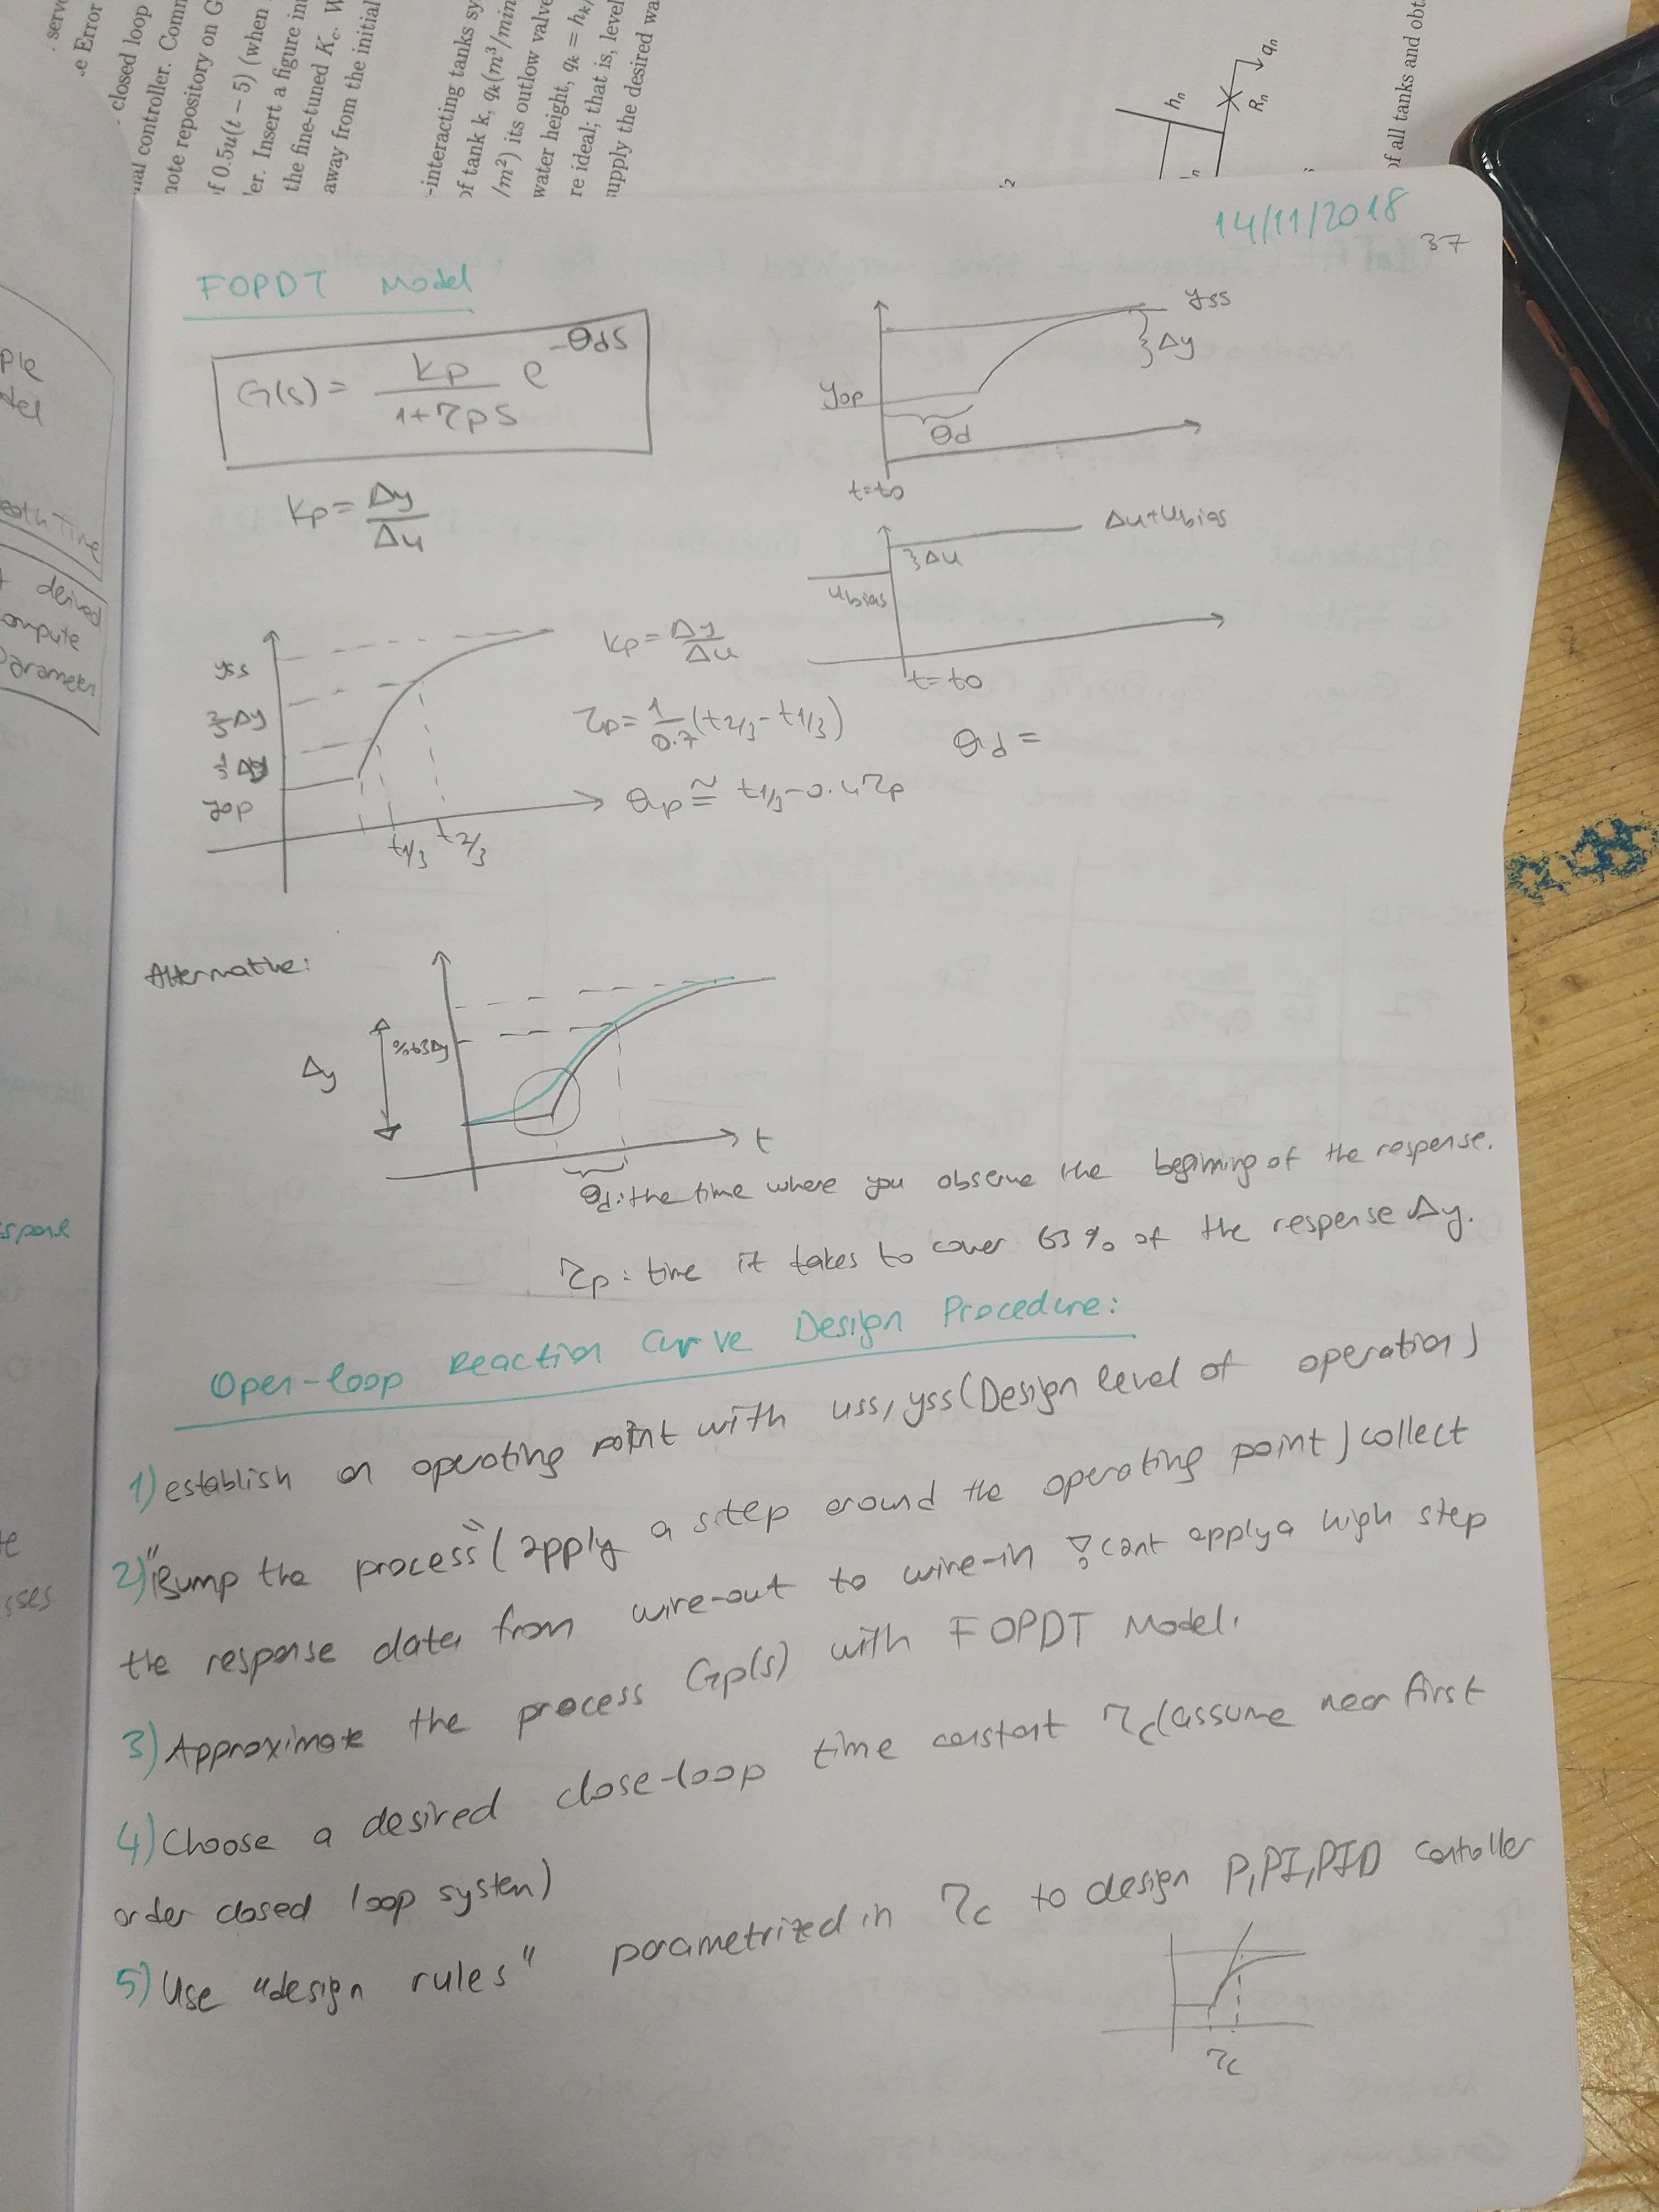 serve
e Error
closed loop
nal controller. Comm
note repository on G
of 0.5u(t − 5) (when
er. Insert a figure in
the fine-tuned Kc. W
away from the initial
-interacting tanks sy
of tank k, qk(m³/min
/m²) its outlow valve
water height, qk = hk/
re ideal; that is, level
upply the desired wa
hn
qn
Rn
of all tanks and obt
ple
del
eath Time
derived
compute
Parameters
spone
te
sses
14/11/2018
37
FOPDT Model
G(s) = kp/(1+τps) e^-θds
kp = Δy/Δu
yss
Δy
yop
θd
t=t0
Δu+ubias
Δu
ubias
t=t0
yss
2/3 Δy
1/3 Δy
yop
t1/3 t2/3
kp = Δy/Δu
τp = 1/0.7 (t2/3 - t1/3)
θd =
θp ≅ t1/3 - 0.4τp
Alternative:
Δy
%63Δy
t
θd: the time where you observe the beginning of the response.
τp: time it takes to cover 63% of the response Δy.
Open-loop Reaction Curve Design Procedure:
1) establish an operating point with uss, yss (Design level of operation)
2) "Bump the process" (apply a sstep around the operating point) collect
the response data from wire-out to wire-in cant apply a high step
3) Approximate the process Gp(s) with FOPDT Model.
4) Choose a desired close-loop time constant τc (assume near first
order closed loop system)
5) Use "design rules" parametrized in τc to design P, PI, PID controller
τc